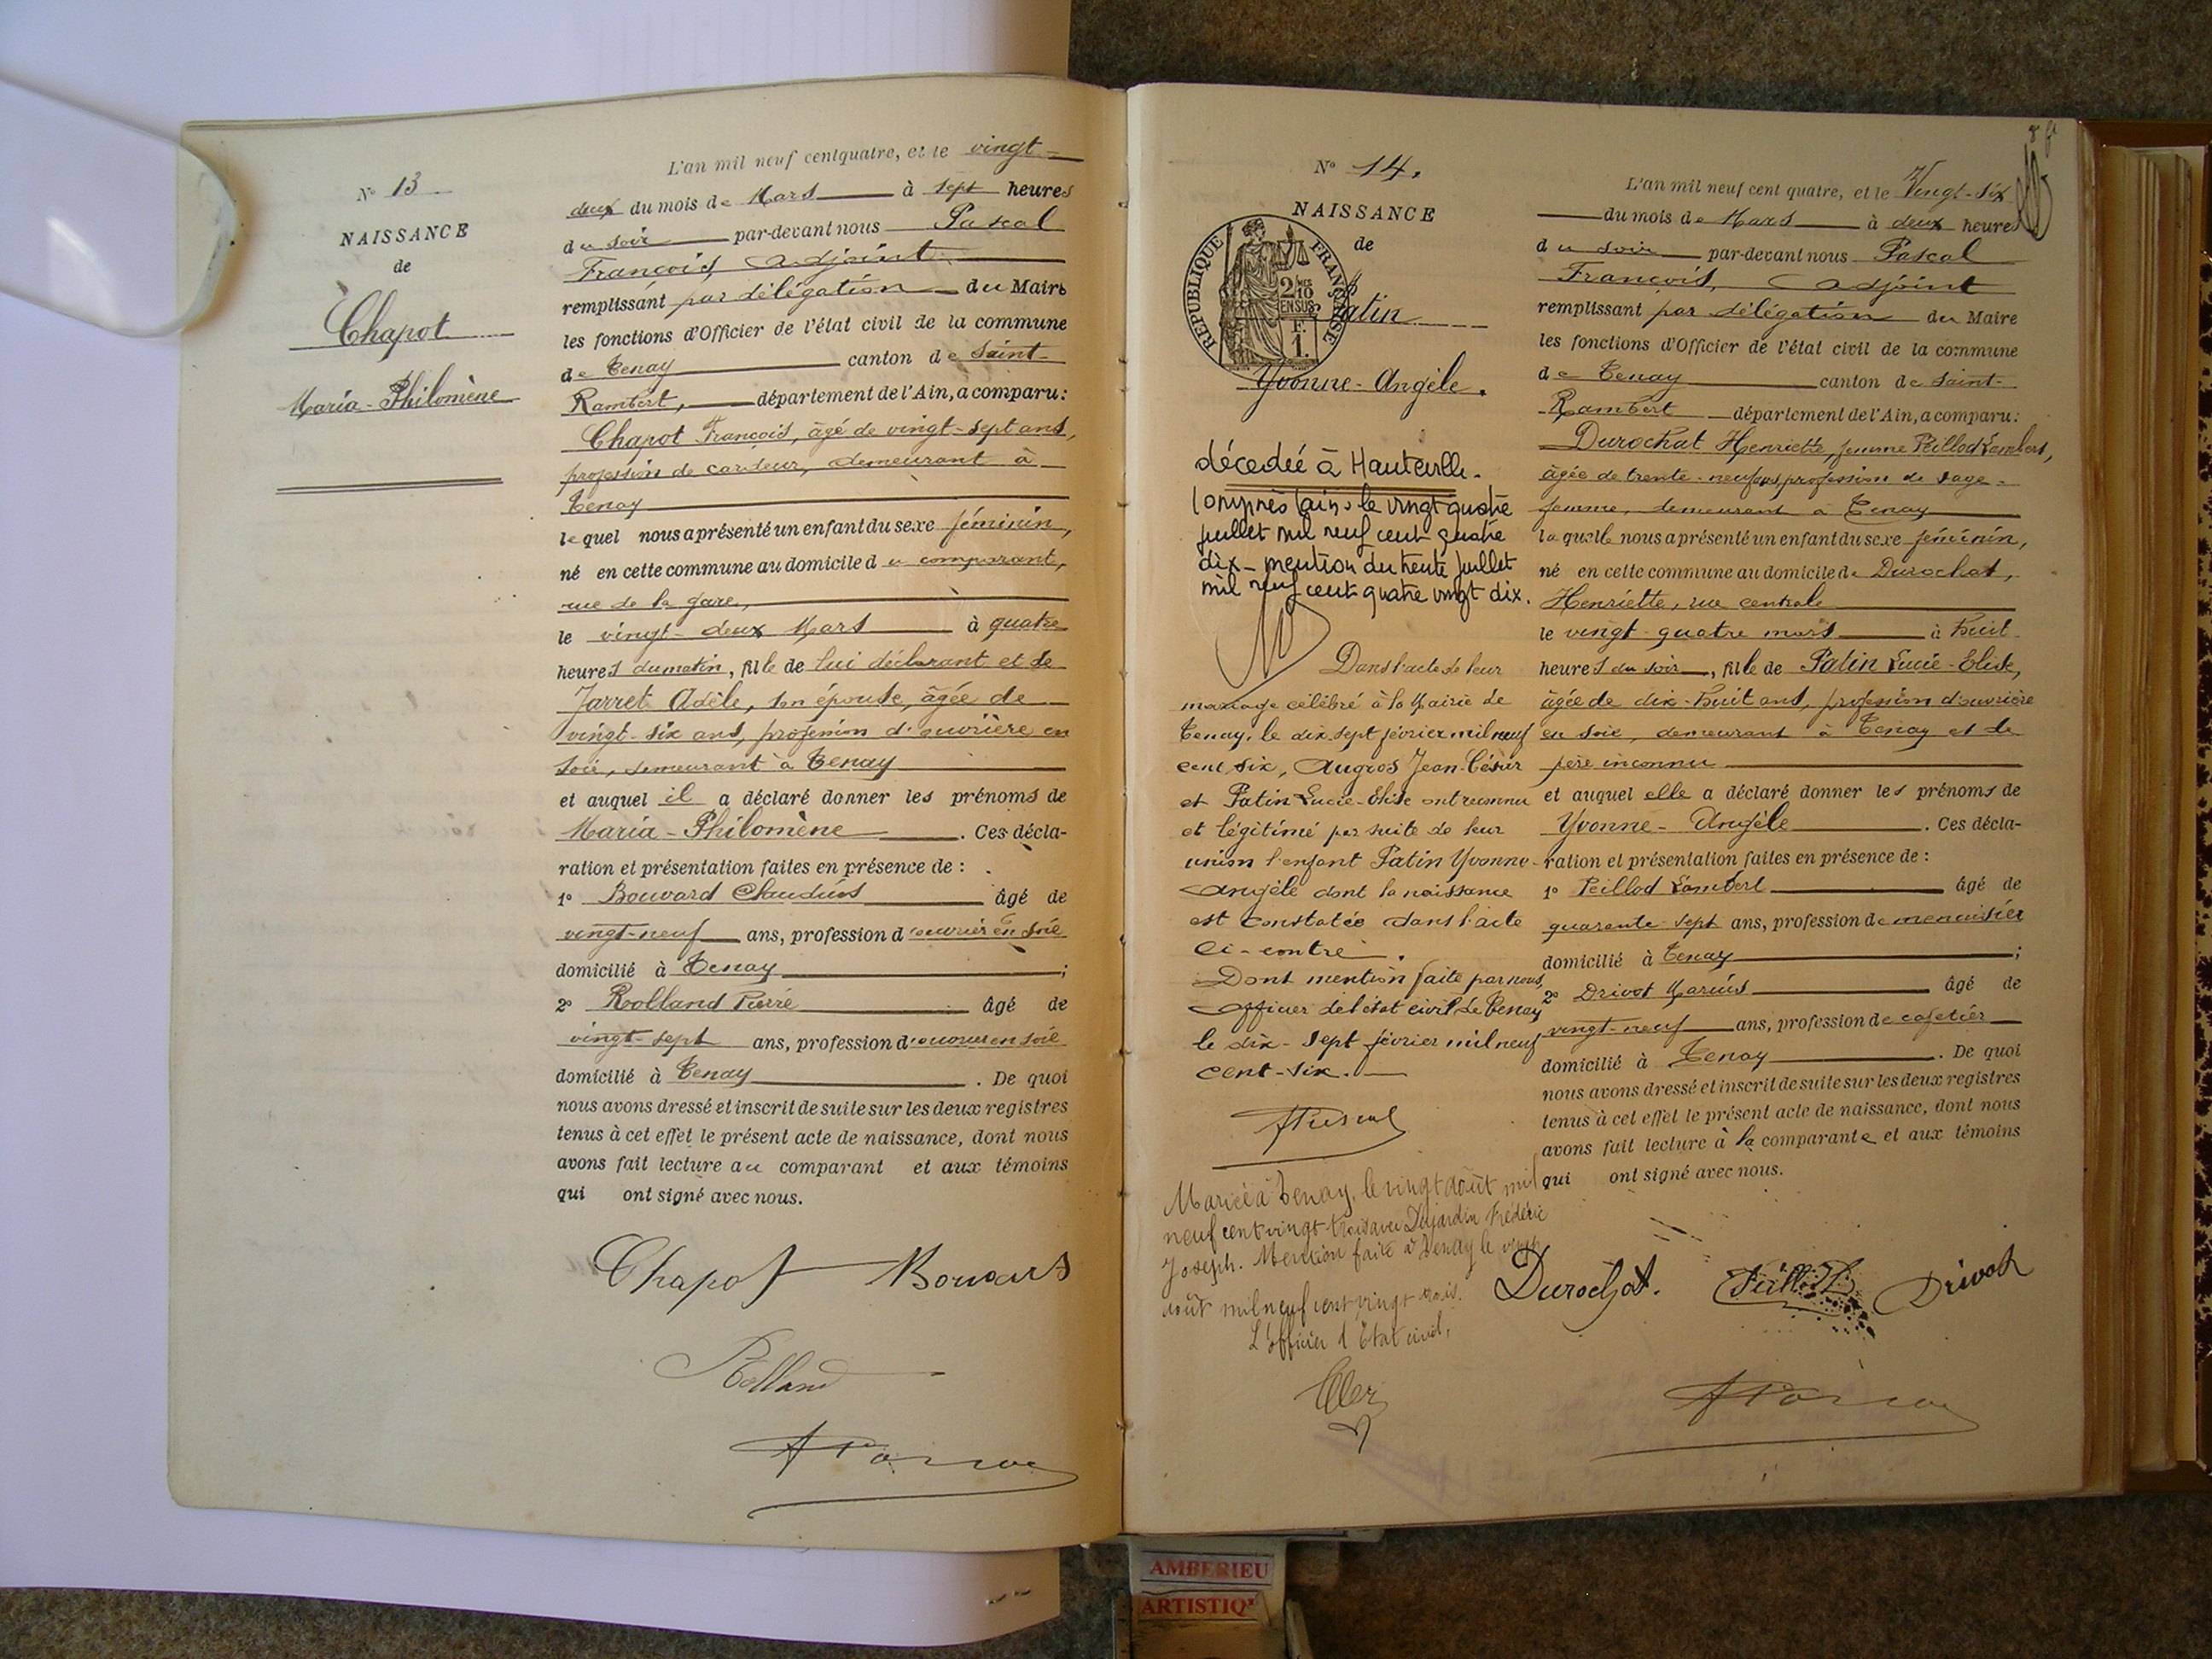 N° 13
NAISSANCE
de
Chapot
Maria-Philomène
L'an mil neuf cent quatre, et le vingt-
deux du mois de Mars à sept heures
du soir par-devant nous Pascal
François, adjoint
remplissant par délégation du Maire
les fonctions d'Officier de l'état civil de la commune
de Tenay canton de Saint-
Rambert, département de l'Ain, a comparu:
Chapot François, âgé de vingt-sept ans,
profession de cardeur, demeurant à
Tenay
lequel nous a présenté un enfant du sexe féminin,
né en cette commune au domicile du comparant,
rue de la gare,
le vingt-deux Mars à quatre
heures du matin, fille de lui déclarant et de
Jarret Adèle, son épouse, âgée de
vingt-six ans, profession d'ouvrière en
soie, demeurant à Tenay
et auquel il a déclaré donner les prénoms de
Maria-Philomène. Ces décla-
ration et présentation faites en présence de :
1° Bouvard Claudius âgé de
vingt-neuf ans, profession d'ouvrier en soie
domicilié à Tenay ;
2° Rolland Pierre âgé de
vingt-sept ans, profession d'ouvrier en soie
domicilié à Tenay. De quoi
nous avons dressé et inscrit de suite sur les deux registres
tenus à cet effet le présent acte de naissance, dont nous
avons fait lecture au comparant et aux témoins
qui ont signé avec nous.
Chapot Bouvard
Rolland
N° 14.
NAISSANCE
de
REPUBLIQUE FRANÇAISE
2/10 EN SUS
1 F.
Patin
Yvonne-Angèle.
décedeé à Hauteville-
Lompnes (Ain) le vingt quatre
juillet mil neuf cent quatre
dix_mention du trente juillet
mil neuf cent quatre vingt dix.
Dans l'acte de leur
mariage célébré à la Mairie de
Tenay, le dix sept février mil neuf
cent six, Augros Jean-César
et Patin Lucie-Elise ont reconnu
et légitimé par suite de leur
union l'enfant Patin Yvonne-
Angèle dont la naissance
est constatée dans l'acte
ci-contre.
Dont mention faite par nous,
officier de l'état civil de Tenay
le dix-sept février mil neuf
cent-six.
Mariée à Tenay, le vingt août mil
neuf cent vingt-trois avec Dujardin Frédéric
Joseph. Mention faite à Tenay le vingt
août mil neuf cent vingt trois.
L'officier d'Etat civil,
L'an mil neuf cent quatre, et le Vingt-six
du mois de Mars à deux heures
du soir par-devant nous Pascal
François, adjoint
remplissant par délégation du Maire
les fonctions d'Officier de l'état civil de la commune
de Tenay canton de Saint-
Rambert département de l'Ain, a comparu:
Durochat Henriette, femme Peillod Lambert,
âgée de trente-neuf ans, profession de sage-
femme, demeurant à Tenay
laquelle nous a présenté un enfant du sexe féminin,
né en cette commune au domicile de Durochat,
Henriette, rue centrale
le vingt quatre mars à huit
heures du soir, fille de Patin Lucie-Elise,
âgée de dix-huit ans, profession d'ouvrière
en soie, demeurant à Tenay et de
père inconnu
et auquel elle a déclaré donner les prénoms de
Yvonne-Angèle. Ces décla-
ration et présentation faites en présence de :
1° Peillod Lambert âgé de
quarante sept ans, profession de menuisier
domicilié à Tenay ;
2° Drivot Marius âgé de
vingt-neuf ans, profession de cafetier
domicilié à Tenay. De quoi
nous avons dressé et inscrit de suite sur les deux registres
tenus à cet effet le présent acte de naissance, dont nous
avons fait lecture à la comparante et aux témoins
qui ont signé avec nous.
Durochat. Peillod L Drivot
AMBERIEU
ARTISTIQ